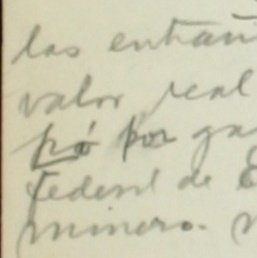 las entrañ
valor real
pó por ga
federal de E
minero.